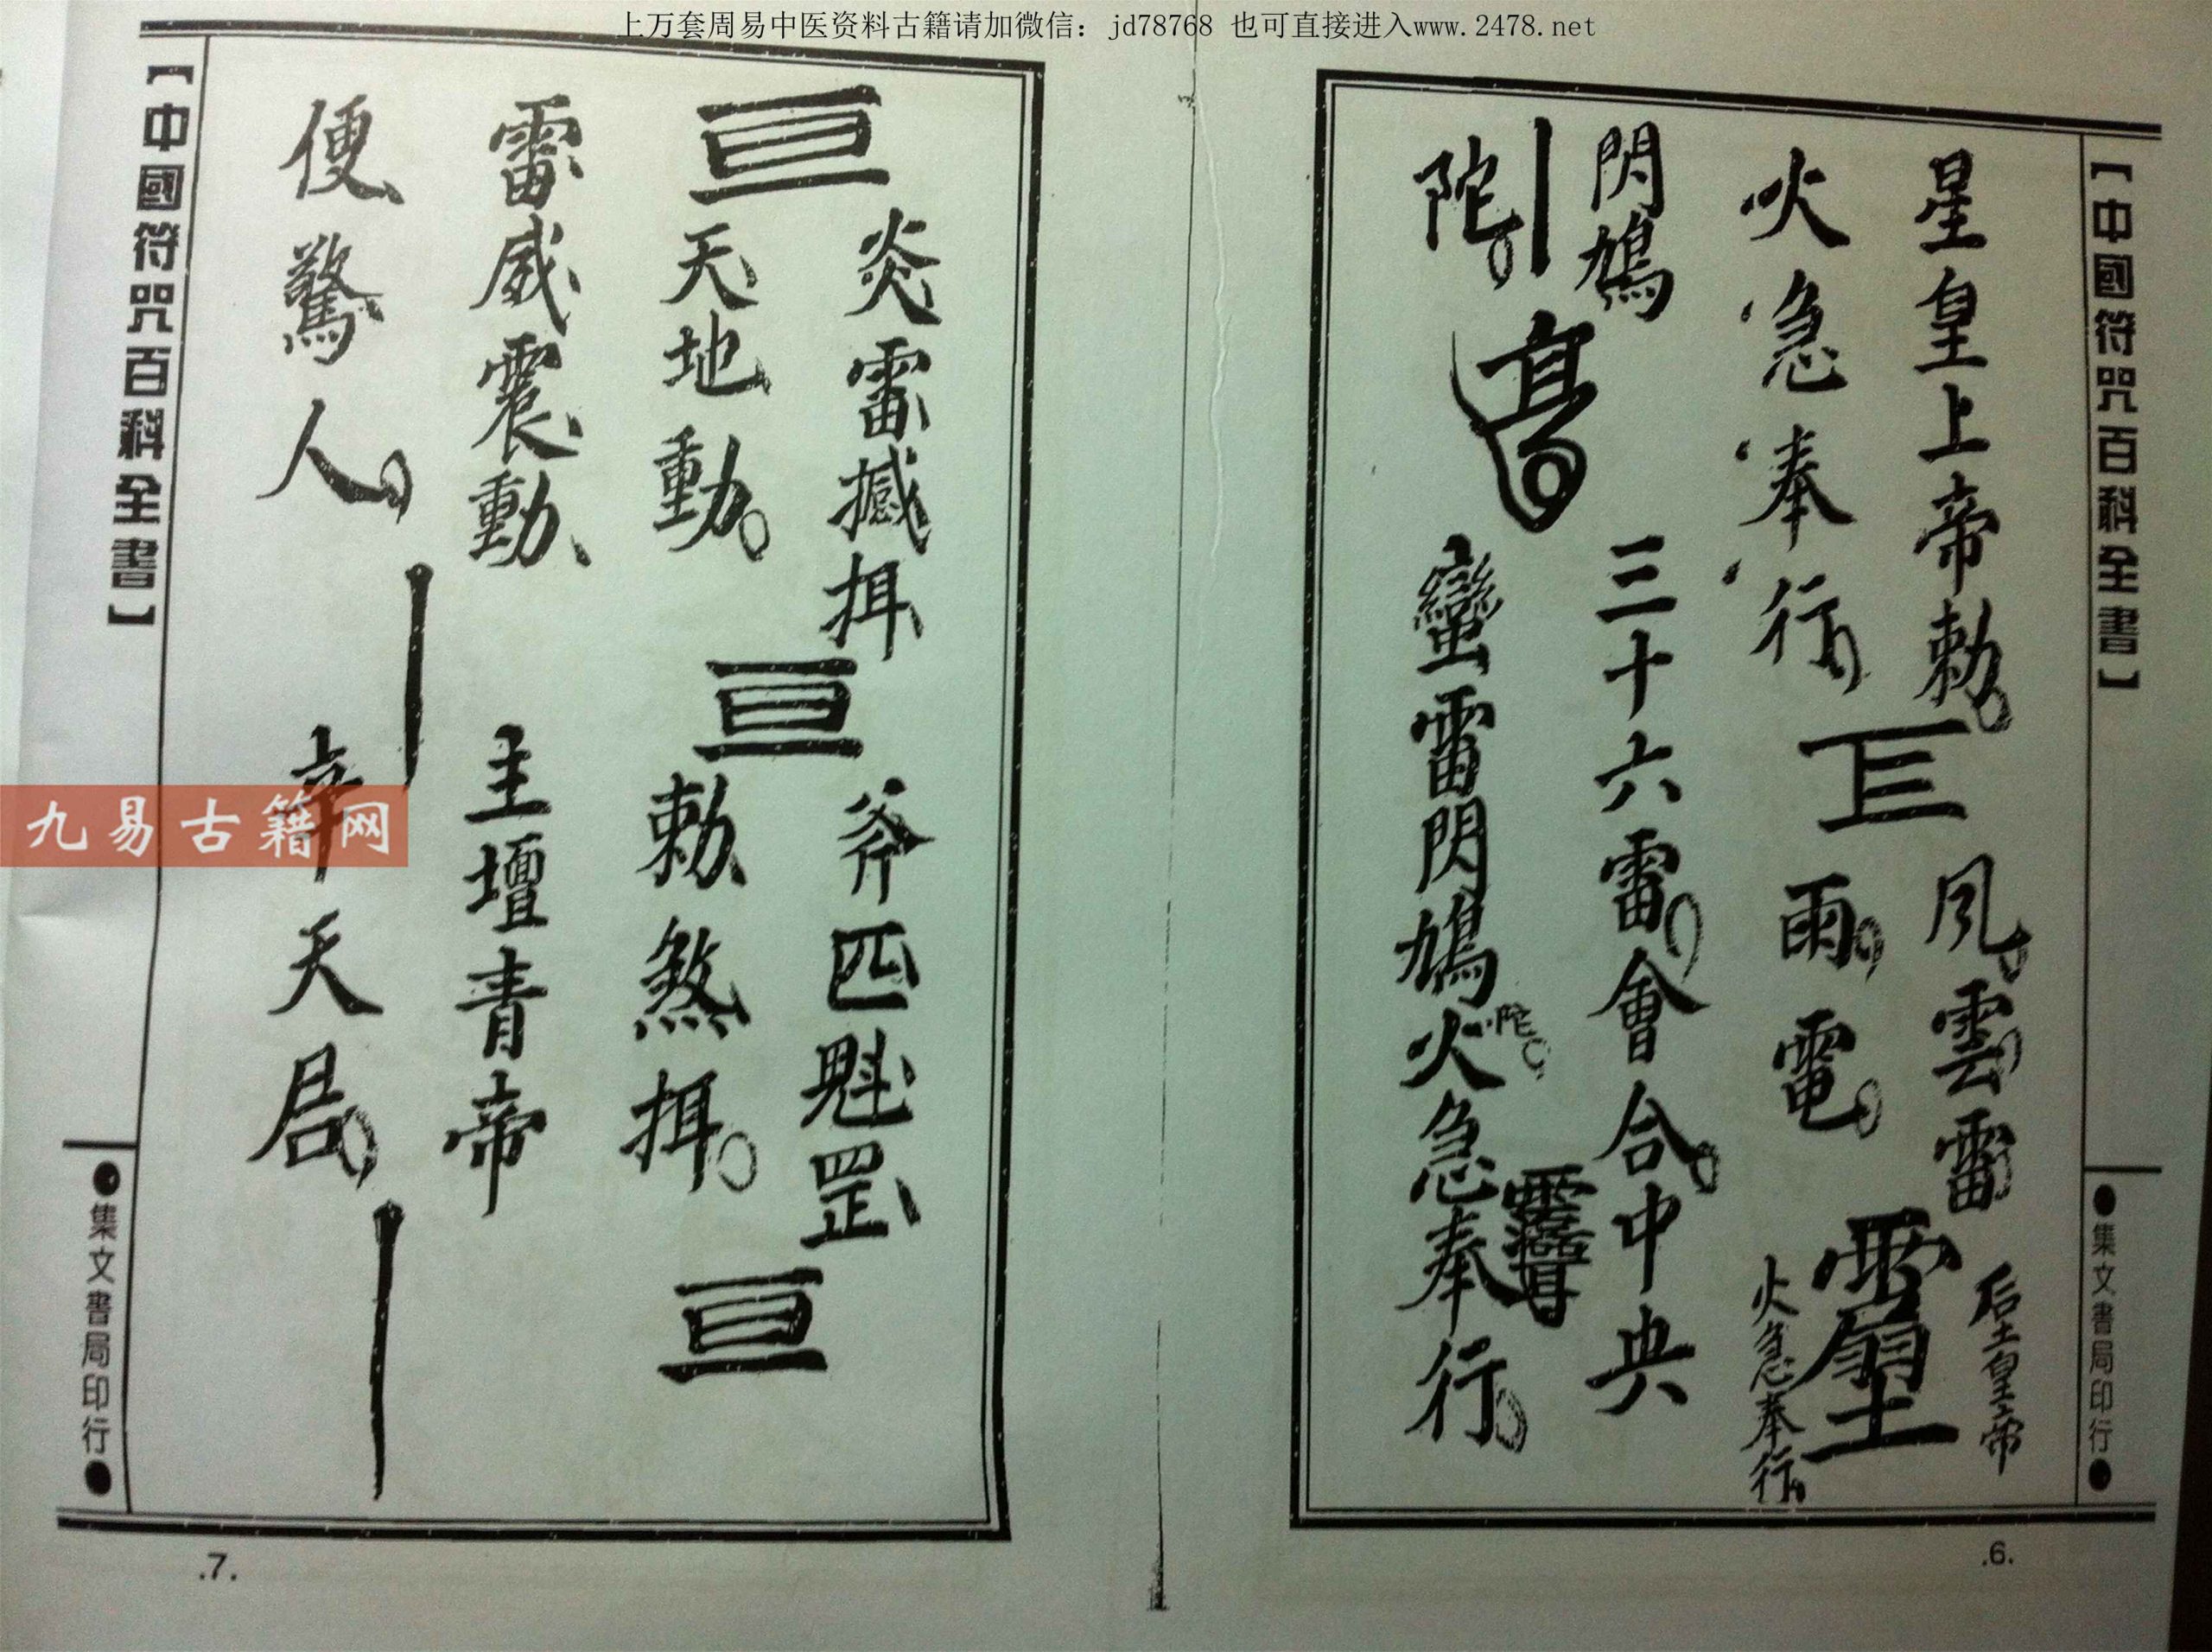 上万套周易中医资料古籍请加微信：jd78768 也可直接进入www.2478.net
【中國符咒百科全書】
●集文書局印行●
星皇上帝勅
風雲雷
后土皇帝
火急奉行
雨電
火急奉行
閃鳩
三十六雷會合中央
陀
蠻雷閃鳩火急奉行
陀
.6.
炎雷撼挕
斧匹魁罡
天地動
勅煞挕
雷威震動
主壇青帝
便驚人
辛天君
【中國符咒百科全書】
●集文書局印行●
.7.
九易古籍网